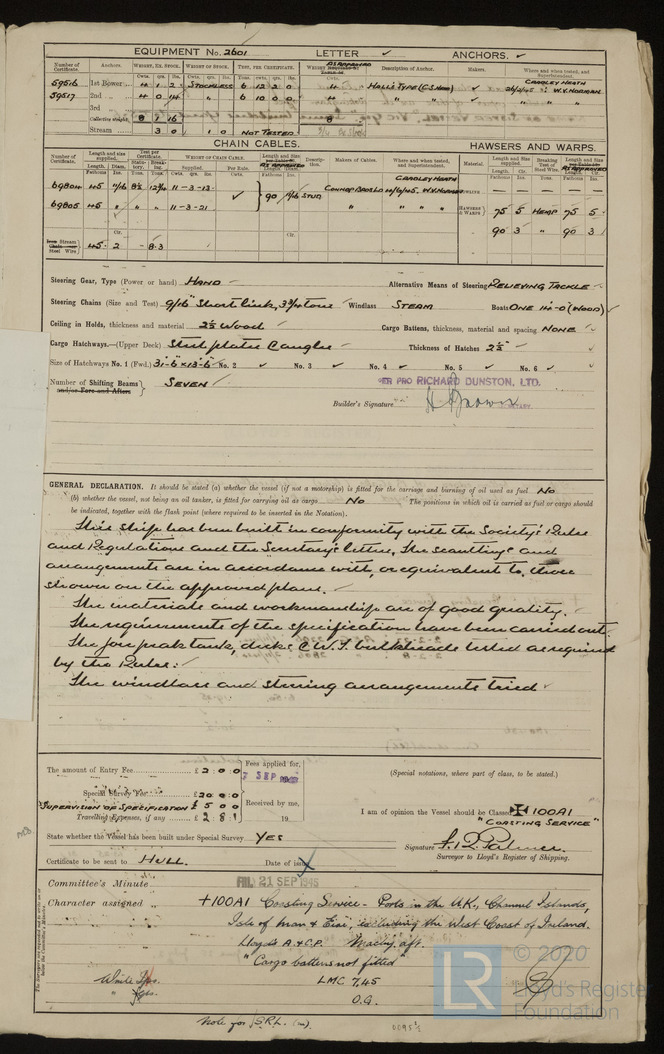 EQUIPMENT No. 2601 LETTER ✓ ANCHORS. ✓
Number of Certificate. Anchors. WEIGHT, EX. STOCK. WEIGHT OF STOCK. TEST, PER CERTIFICATE. AS APPROVED Description of Anchor. Makers. Where and when tested, and Superintendent.
Cwts. qrs. lbs. Cwts. qrs. lbs. Tons. cwts. qrs. lbs. Cwts. CRADLEY HEATH
59516 1st Bower 4 1 2 STOCKLESS 6 12 2 0 4 HALL'S TYPE ✓ W.V. NORMAN
59517 2nd „ 4 0 14 „ 6 10 0 4 „ „ „ „
3rd „
Collective weight 8 1 16 8
Stream 3 0 1 0 NOT TESTED
CHAIN CABLES. HAWSERS AND WARPS.
Number of Certificate. Length and size supplied. Test per Certificate. WEIGHT OF CHAIN CABLE. Length and Size AS APPROVED Description. Makers of Cables. Where and when tested, and Superintendent. Material. Length and Size supplied. Breaking Test of Steel Wire. Length and Size AS APPROVED
Length. Diam. Statutory. Breaking. Supplied. Per Rule. Length. Diam. CRADLEY HEATH
Fathoms Ins. Tons. Tons. Fathoms Ins. Fathoms Cir. Tons. Fathoms Cir.
69804 45 11/16 11-3-13 ✓ 90 11/16 STUD W.V. NORMAN — — — —
69805 45 „ „ „ 11-3-21 „ „ „ „ HAWSERS & WARPS 75 5 HEMP 75 5
90 3 „ 90 3
Cir. Cir.
Stream Steel Wire 45 2 - 8.3
Steering Gear, Type (Power or hand) HAND Alternative Means of Steering RELIEVING TACKLE
Steering Chains (Size and Test) 9/16" Short link, 3¾ tons Windlass STEAM Boats ONE 14'-0" (WOOD) ✓
Ceiling in Holds, thickness and material 2½" Wood Cargo Battens, thickness, material and spacing NONE ✓
Cargo Hatchways.—(Upper Deck) Steel plates & angles Thickness of Hatches 2½" ✓
Size of Hatchways No. 1 (Fwd.) 31'-6" x 13'-6" No. 2 ✓ No. 3 ✓ No. 4 ✓ No. 5 ✓ No. 6 ✓
Number of Shifting Beams and/or Fore and Afters SEVEN ✓
PER PRO RICHARD DUNSTON, LTD.
Builder's Signature H Brown SECRETARY
GENERAL DECLARATION. It should be stated (a) whether the vessel (if not a motorship) is fitted for the carriage and burning of oil used as fuel No
(b) whether the vessel, not being an oil tanker, is fitted for carrying oil as cargo No The positions in which oil is carried as fuel or cargo should
be indicated, together with the flash point (where required to be inserted in the Notation).
This ship has been built in conformity with the Society's Rules
and Regulations and the Secretary's letters, The scantlings and
arrangements are in accordance with, or equivalent to, those
shown on the approved plans.
The materials and workmanship are of good quality.
The requirements of the specification have been carried out.
The fore peak tank, decks & W.T. bulkheads tested as required
by the Rules:
The windlass and steering arrangements tried ✓
The amount of Entry Fee £ 2 : 0 : 0 Fees applied for,
7 SEP 1945 (Special notations, where part of class, to be stated.)
Special Survey Fee £ 20 : 0 :
SUPERVISION OF SPECIFICATION £ 5 0 0 Received by me,
Travelling Expenses, if any £ 2 : 8 : 1 19
I am of opinion the Vessel should be Classed ✠ 100A1
"COASTING SERVICE"
State whether the Vessel has been built under Special Survey YES
Signature
Surveyor to Lloyd's Register of Shipping.
Certificate to be sent to HULL. Date of issue
Committee's Minute FRI. 21 SEP 1945
Character assigned „ +100A1 Coasting Service - Ports in the U.K., Channel Islands,
Isle of Man & Eire, including the West Coast of Ireland.
Lloyd's A & C.P. Machy. aft.
"Cargo battens not fitted"
LMC 7.45
O.G.
Note for S.R.L.
© 2020
LR
Lloyd's Register
Foundation